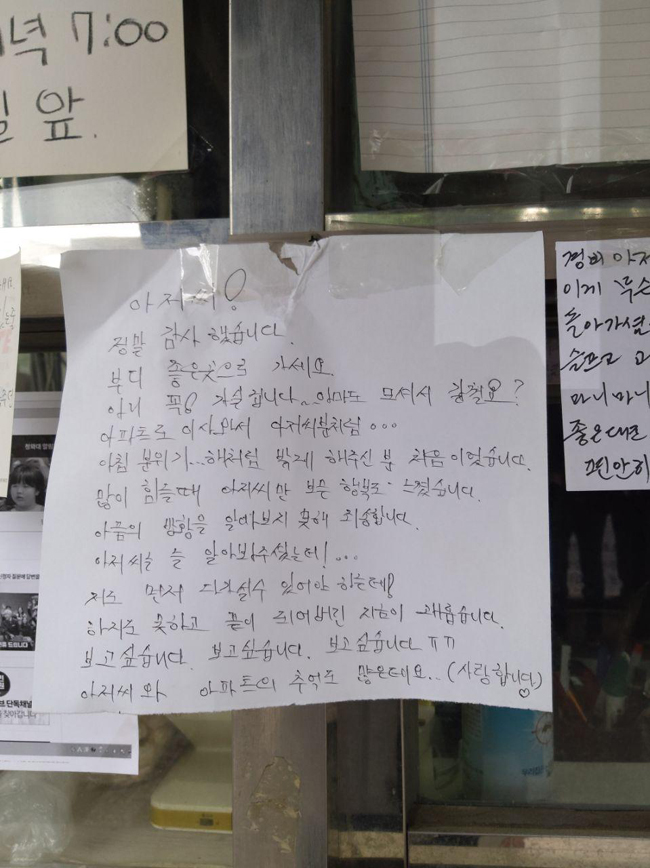 녁 7:00
앞.
아저씨!
정말 감사했습니다.
부디 좋은곳으로 가세요
아니 꼭! 가실겁니다.. 엄마도 모셔서 갈철요?
아파트로 이사와서 아저씨분처럼...
아침 분위기...해처럼 밝게 해주신 분 처음이었습니다.
많이 힘들때 아저씨만 보믄 행복도 느꼈습니다.
아픔의 방황을 알아보지 못해 죄송합니다.
아저씨는 늘 알아봐주셨는데!...
저도 먼저 다가실수 있어야 하는데!
하지도 못하고 끝이 되어버린 지금이 괴롭습니다.
보고싶습니다. 보고싶습니다. 보고싶습니다 ㅠㅠ
아저씨와 아파트의 추억도 많은데요.. (사랑합니다)♡
경비 아저
이게 무슨
돌아가셨
슬프고 고
마니마니
좋은데로
편안히
단독채널
찾아갑니다